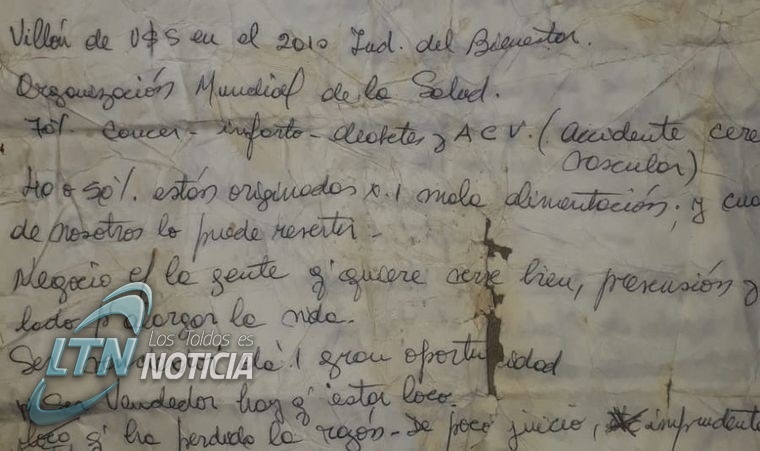 Villón de U$S en el 2010 Ind. del Bienestar.
Organización Mundial de la Salud.
70% Cancer - infarto - diabetes y ACV. (accidente cere
vascular)
40 o 50% están originados x. 1 mala alimentación; y cua
de nosotros lo puede revertir -
Negocio es la gente q' quiere verse bien, prevensión y
lado p' alargar la vida.
LTN Los Toldos es NOTICIA
Se 1 gran oportunidad
Ser Vendedor hay q' estar loco.
loco q' ha perdido la razón - de poco juicio, imprudente